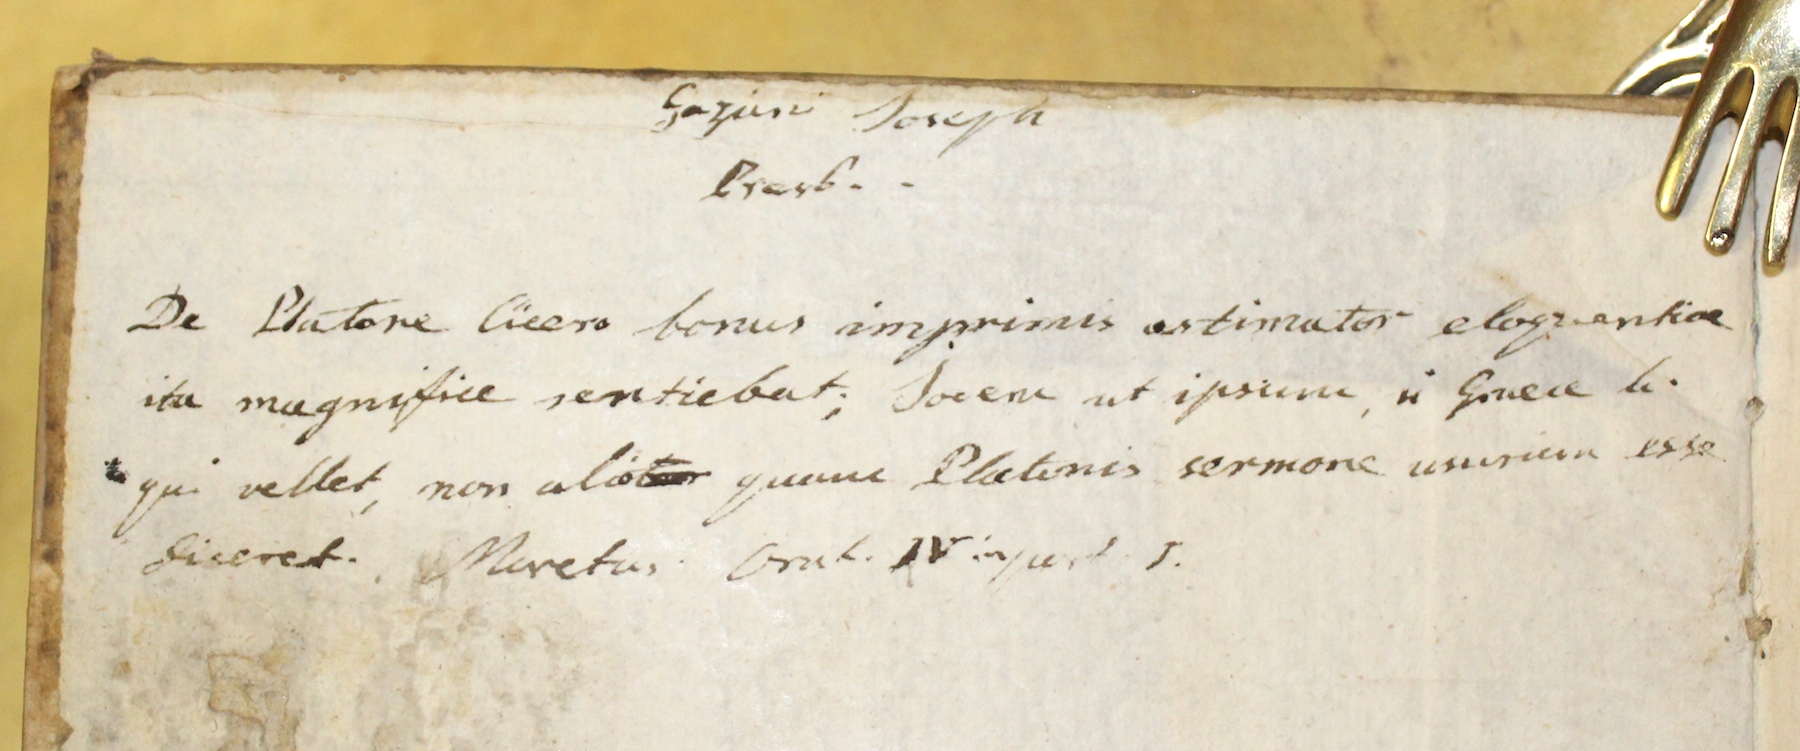 Gazini Joseph
Presb. -
De Platone Cicero bonus imprimis estimator eloquentiae
ita magnifice sentiebat; Jovem ut ipsum, si Graece lo-
qui vellet, non alio quam Platonis sermone usurum esse
diceret. Muretus Orat. IV in part. I.